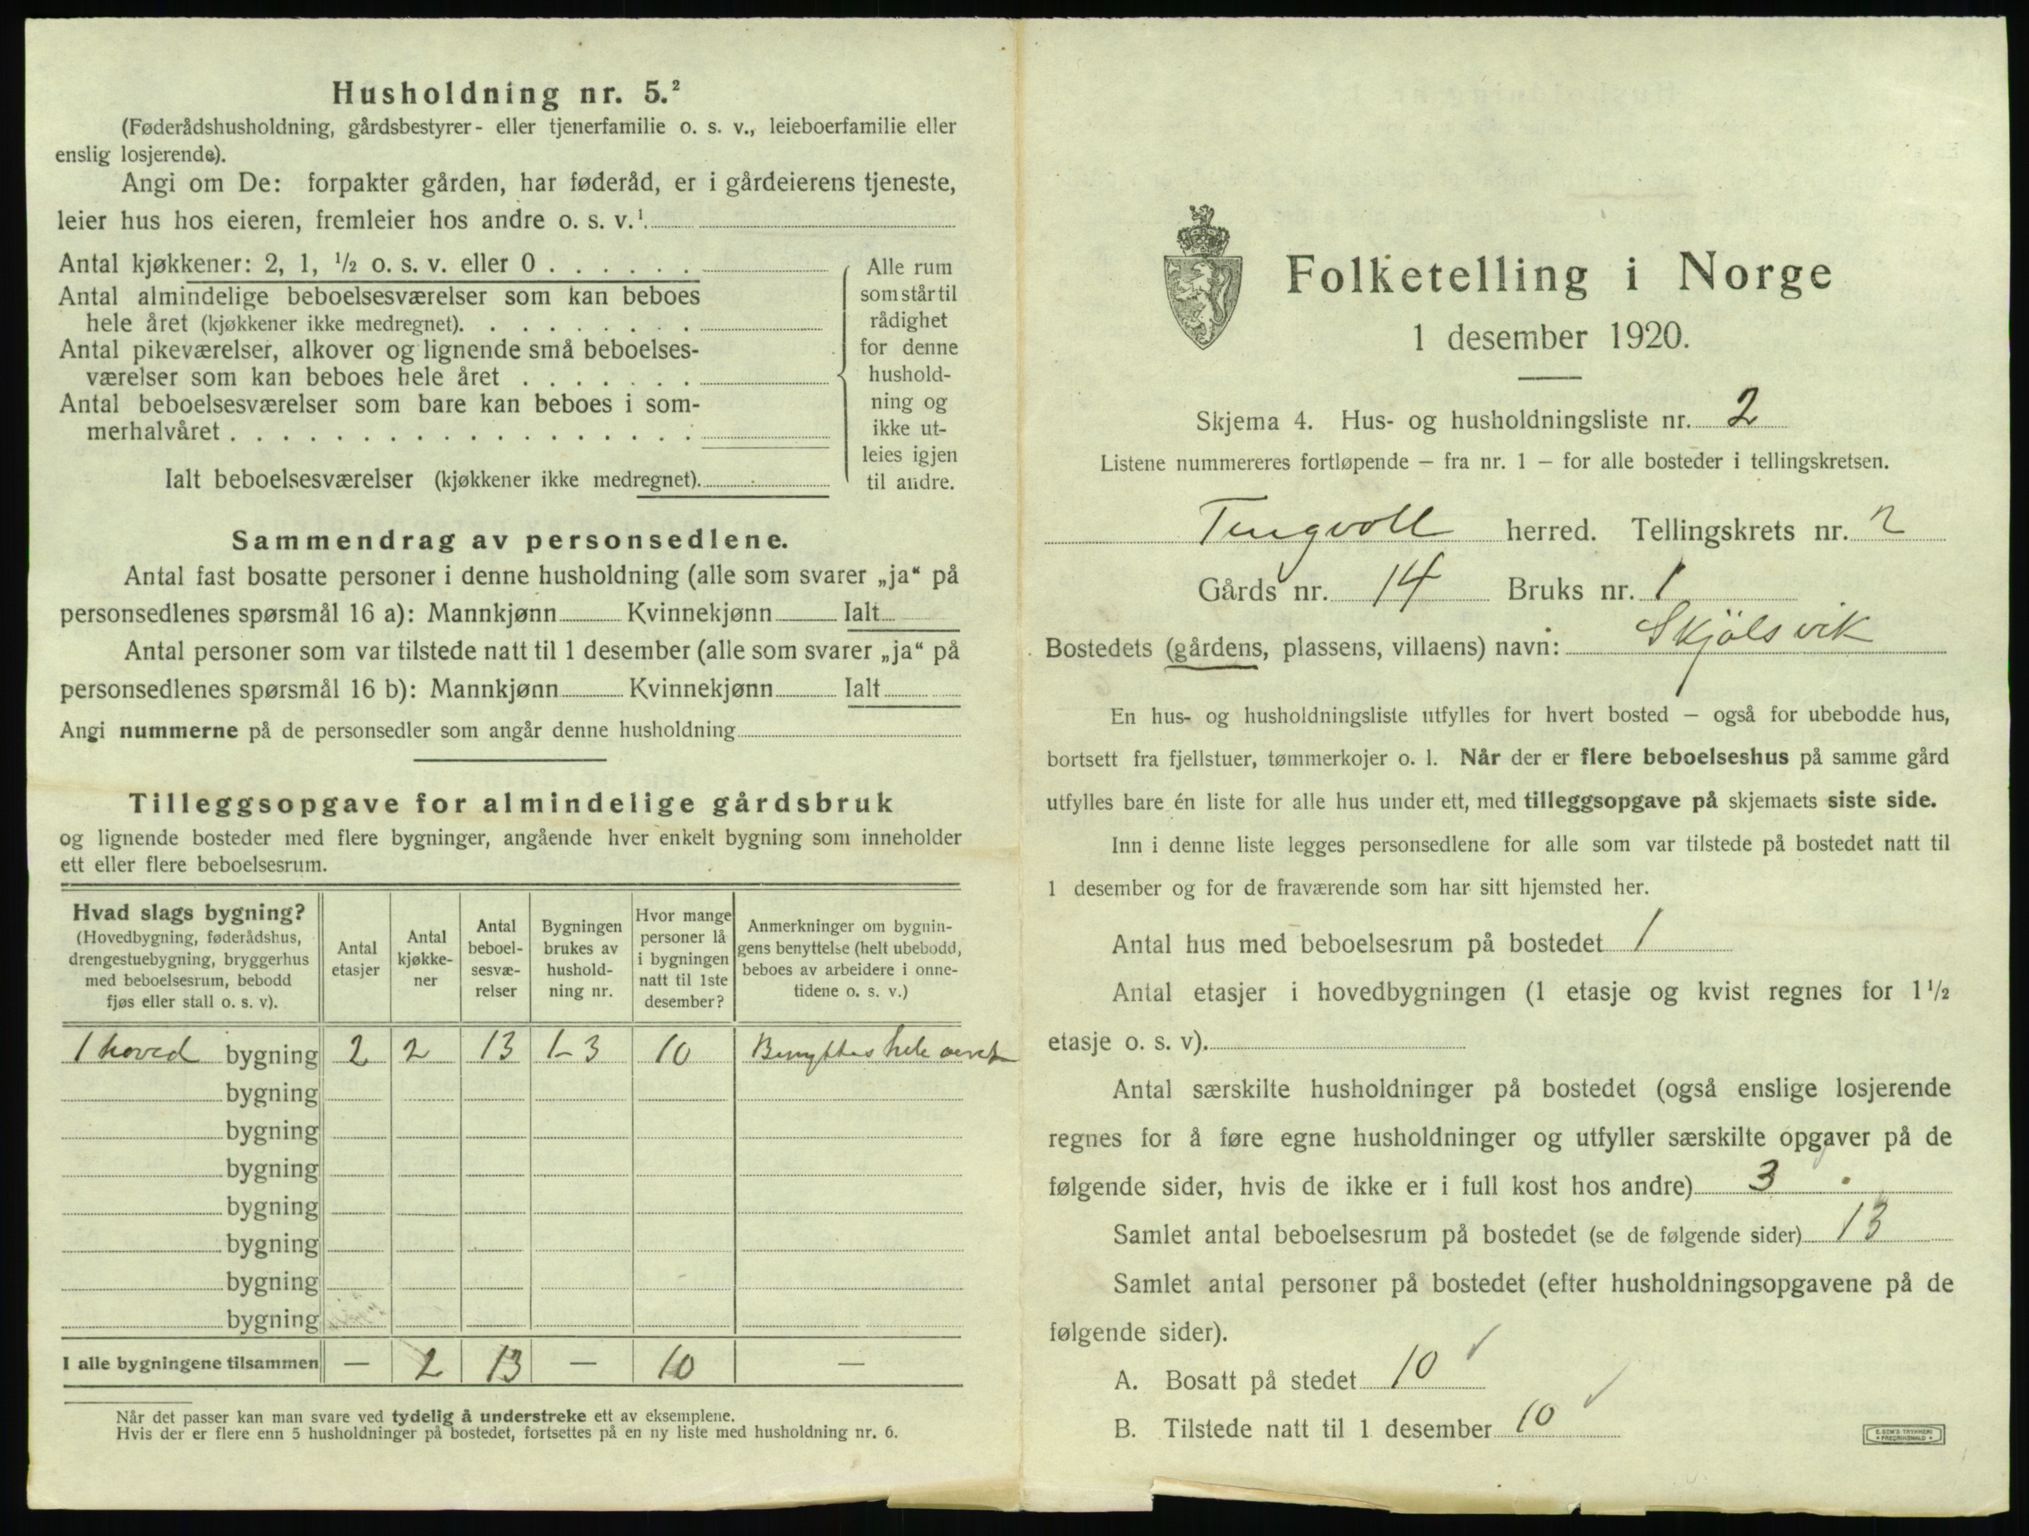 Husholdning nr. 5.²
(Føderådshusholdning, gårdsbestyrer- eller tjenerfamilie o. s. v., leieboerfamilie eller
enslig losjerende).
Angi om De: forpakter gården, har føderåd, er i gårdeierens tjeneste,
leier hus hos eieren, fremleier hos andre o. s. v.¹
Antal kjøkkener: 2, 1, ½ o. s. v. eller 0 . . . . . .
Antal almindelige beboelsesværelser som kan beboes
hele året (kjøkkener ikke medregnet). . . . . . . . .
Antal pikeværelser, alkover og lignende små beboelses-
værelser som kan beboes hele året . . . . . . .
Antal beboelsesværelser som bare kan beboes i som-
merhalvåret . . . . . . . . . . . . . . . . . .
Ialt beboelsesværelser (kjøkkener ikke medregnet)
Alle rum
som står til
rådighet
for denne
hushold-
ning og
ikke ut-
leies igjen
til andre.
Sammendrag av personsedlene.
Antal fast bosatte personer i denne husholdning (alle som svarer „ja“ på
personsedlenes spørsmål 16 a): Mannkjønn Kvinnekjønn Ialt
Antal personer som var tilstede natt til 1 desember (alle som svarer „ja“ på
personsedlenes spørsmål 16 b): Mannkjønn Kvinnekjønn Ialt
Angi nummerne på de personsedler som angår denne husholdning
Tilleggsopgave for almindelige gårdsbruk
og lignende bosteder med flere bygninger, angående hver enkelt bygning som inneholder
ett eller flere beboelsesrum.
Hvad slags bygning?
(Hovedbygning, føderådshus,
drengestuebygning, bryggerhus
med beboelsesrum, bebodd
fjøs eller stall o. s. v).
Antal
etasjer
Antal
kjøkke-
ner
Antal
beboel-
sesvæ-
relser
Bygningen
brukes av
hushold-
ning nr.
Hvor mange
personer lå
i bygningen
natt til 1ste
desember?
Anmerkninger om bygnin-
gens benyttelse (helt ubebodd,
beboes av arbeidere i onne-
tidene o. s. v.)
1 hoved bygning 2 2 13 1-3 10 Benyttes hele aaret
bygning
bygning
bygning
bygning
bygning
bygning
bygning
I alle bygningene tilsammen — 2 13 — 10 —
Når det passer kan man svare ved tydelig å understreke ett av eksemplene.
Hvis der er flere enn 5 husholdninger på bostedet, fortsettes på en ny liste med husholdning nr. 6.
Folketelling i Norge
1 desember 1920.
Skjema 4. Hus- og husholdningsliste nr. 2
Listene nummereres fortløpende – fra nr. 1 – for alle bosteder i tellingskretsen.
Tingvoll herred. Tellingskrets nr. 2
Gårds nr. 14 Bruks nr. 1
Bostedets (gårdens, plassens, villaens) navn: Skjölsvik
En hus- og husholdningsliste utfylles for hvert bosted – også for ubebodde hus,
bortsett fra fjellstuer, tømmerkojer o. l. Når der er flere beboelseshus på samme gård
utfylles bare én liste for alle hus under ett, med tilleggsopgave på skjemaets siste side.
Inn i denne liste legges personsedlene for alle som var tilstede på bostedet natt til
1 desember og for de fraværende som har sitt hjemsted her.
Antal hus med beboelsesrum på bostedet 1
Antal etasjer i hovedbygningen (1 etasje og kvist regnes for 1½
etasje o. s. v).
Antal særskilte husholdninger på bostedet (også enslige losjerende
regnes for å føre egne husholdninger og utfyller særskilte opgaver på de
følgende sider, hvis de ikke er i full kost hos andre) 3
Samlet antal beboelsesrum på bostedet (se de følgende sider) 13
Samlet antal personer på bostedet (efter husholdningsopgavene på de
følgende sider).
A. Bosatt på stedet 10 ✓
B. Tilstede natt til 1 desember 10 ✓